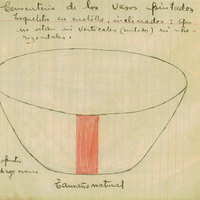 Cementerio de los Vasos Pintados
Esqueletos en cuclillas, inclinados: que
no estan ni verticales ni ho-
rizontales.
Tamaño natural